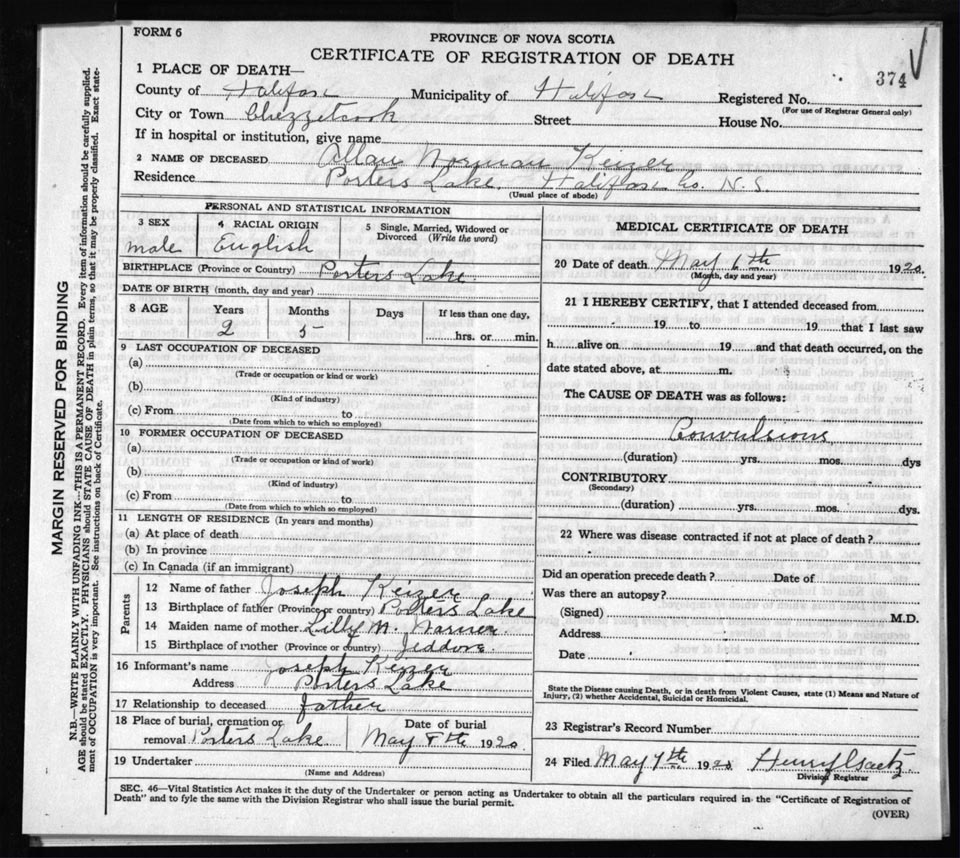 FORM 6
PROVINCE OF NOVA SCOTIA
CERTIFICATE OF REGISTRATION OF DEATH
374
1 PLACE OF DEATH—
County of Halifax Municipality of Halifax Registered No.
(For use of Registrar General only)
City or Town Chezzetcook Street House No.
If in hospital or institution, give name
2 NAME OF DECEASED Allan Norman Keizer
Residence Porters Lake. Halifax Co. N.S.
(Usual place of abode)
PERSONAL AND STATISTICAL INFORMATION
3 SEX 4 RACIAL ORIGIN 5 Single, Married, Widowed or Divorced (Write the word)
male English
BIRTHPLACE (Province or Country) Porters Lake
DATE OF BIRTH (month, day and year)
8 AGE Years Months Days If less than one day,
2 5 hrs. or min.
9 LAST OCCUPATION OF DECEASED
(a)
(Trade or occupation or kind or work)
(b)
(Kind of industry)
(c) From to
(Date from which to which so employed)
10 FORMER OCCUPATION OF DECEASED
(a)
(Trade or occupation or kind of work)
(b)
(Kind of industry)
(c) From to
(Date from which to which so employed)
11 LENGTH OF RESIDENCE (In years and months)
(a) At place of death
(b) In province
(c) In Canada (if an immigrant)
Parents
12 Name of father Joseph Keizer
13 Birthplace of father (Province or country) Porters Lake
14 Maiden name of mother Lilly M. Warner
15 Birthplace of mother (Province or country) Jeddore
16 Informant's name Joseph Keizer
Address Porters Lake
17 Relationship to deceased father
18 Place of burial, cremation or removal Porters Lake
Date of burial May 8th 1920
19 Undertaker
(Name and Address)
MEDICAL CERTIFICATE OF DEATH
20 Date of death May 6th 1920
(Month, day and year)
21 I HEREBY CERTIFY, that I attended deceased from
19 to 19 that I last saw
h alive on 19 and that death occurred, on the
date stated above, at m.
The CAUSE OF DEATH was as follows:
Convulsions
(duration) yrs. mos. dys
CONTRIBUTORY
(Secondary)
(duration) yrs. mos. dys.
22 Where was disease contracted if not at place of death?
Did an operation precede death? Date of
Was there an autopsy?
(Signed) M.D.
Address
Date
State the Disease causing Death, or in death from Violent Causes, state (1) Means and Nature of
Injury, (2) whether Accidental, Suicidal or Homicidal.
23 Registrar's Record Number
24 Filed May 7th 1920 Henry Gaetz
Division Registrar
SEC. 46—Vital Statistics Act makes it the duty of the Undertaker or person acting as Undertaker to obtain all the particulars required in the "Certificate of Registration of
Death" and to fyle the same with the Division Registrar who shall issue the burial permit.
(OVER)
MARGIN RESERVED FOR BINDING
N.B.—WRITE PLAINLY WITH UNFADING INK—THIS IS A PERMANENT RECORD. Every item of information should be carefully supplied.
AGE should be stated EXACTLY. PHYSICIANS should STATE CAUSE OF DEATH in plain terms, so that it may be properly classified. Exact state-
ment of OCCUPATION is very important. See instructions on back of Certificate.